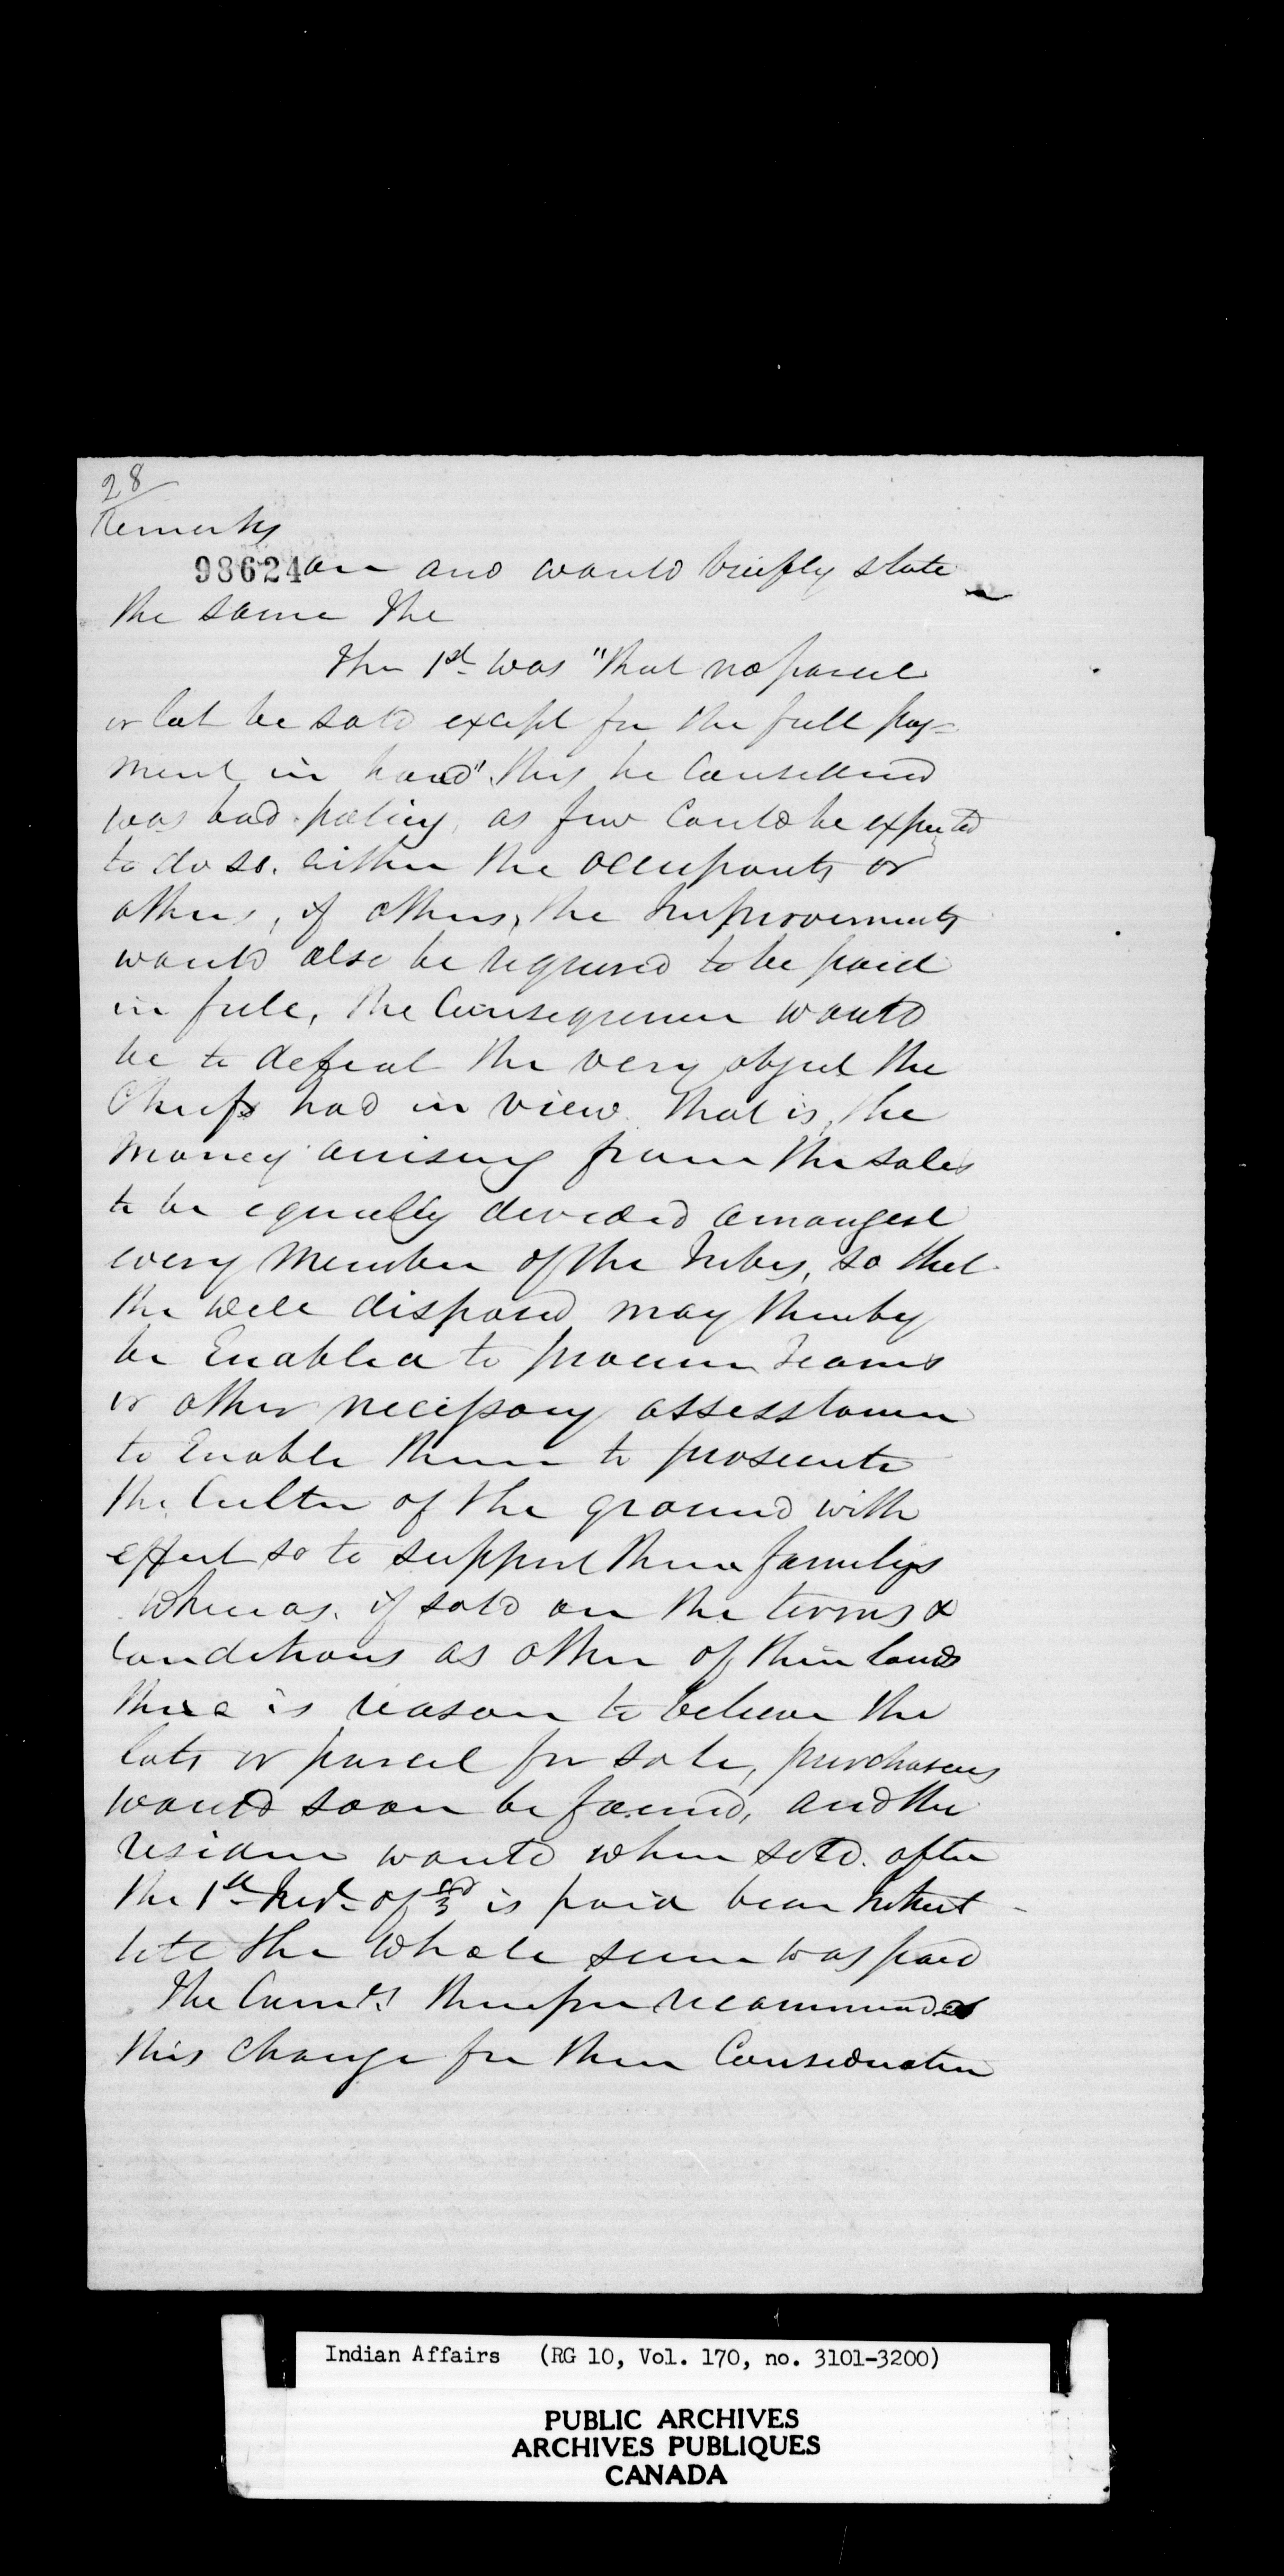 28
Remarks
98624 on and would briefly state
the same the
The 1st was "that no parcel
or lot be sold except for the full pay=
ment in hand" this he Considered
was bad policy, as few Could be expected
to do so. either the occupants or
others, if others, the Improvements
would also be required to be paid
in full, the Consequence would
be to defeat the very object the
Chiefs had in view. that is, the
money arising from the sales
to be equally devided amongest
every Member of the Tribes, so that
the well disposed may thereby
be Enabled to procure Teams
or other necessary assesstance
to Enable them to prosecute
the Culter of the ground with
effect so to support their familys
Whereas, if sold on the terms &
Conditions as other of their lands
there is reason to believe the
lots or parcel for sale, purchasers
would soon be found, and the
residue would when sold. after
the 1st of 3rd is paid bear
till the whole sum was paid
The Comr. therefore recommends
this Change for their Consideration
Indian Affairs (RG 10, Vol. 170, no. 3101-3200)
PUBLIC ARCHIVES
ARCHIVES PUBLIQUES
CANADA